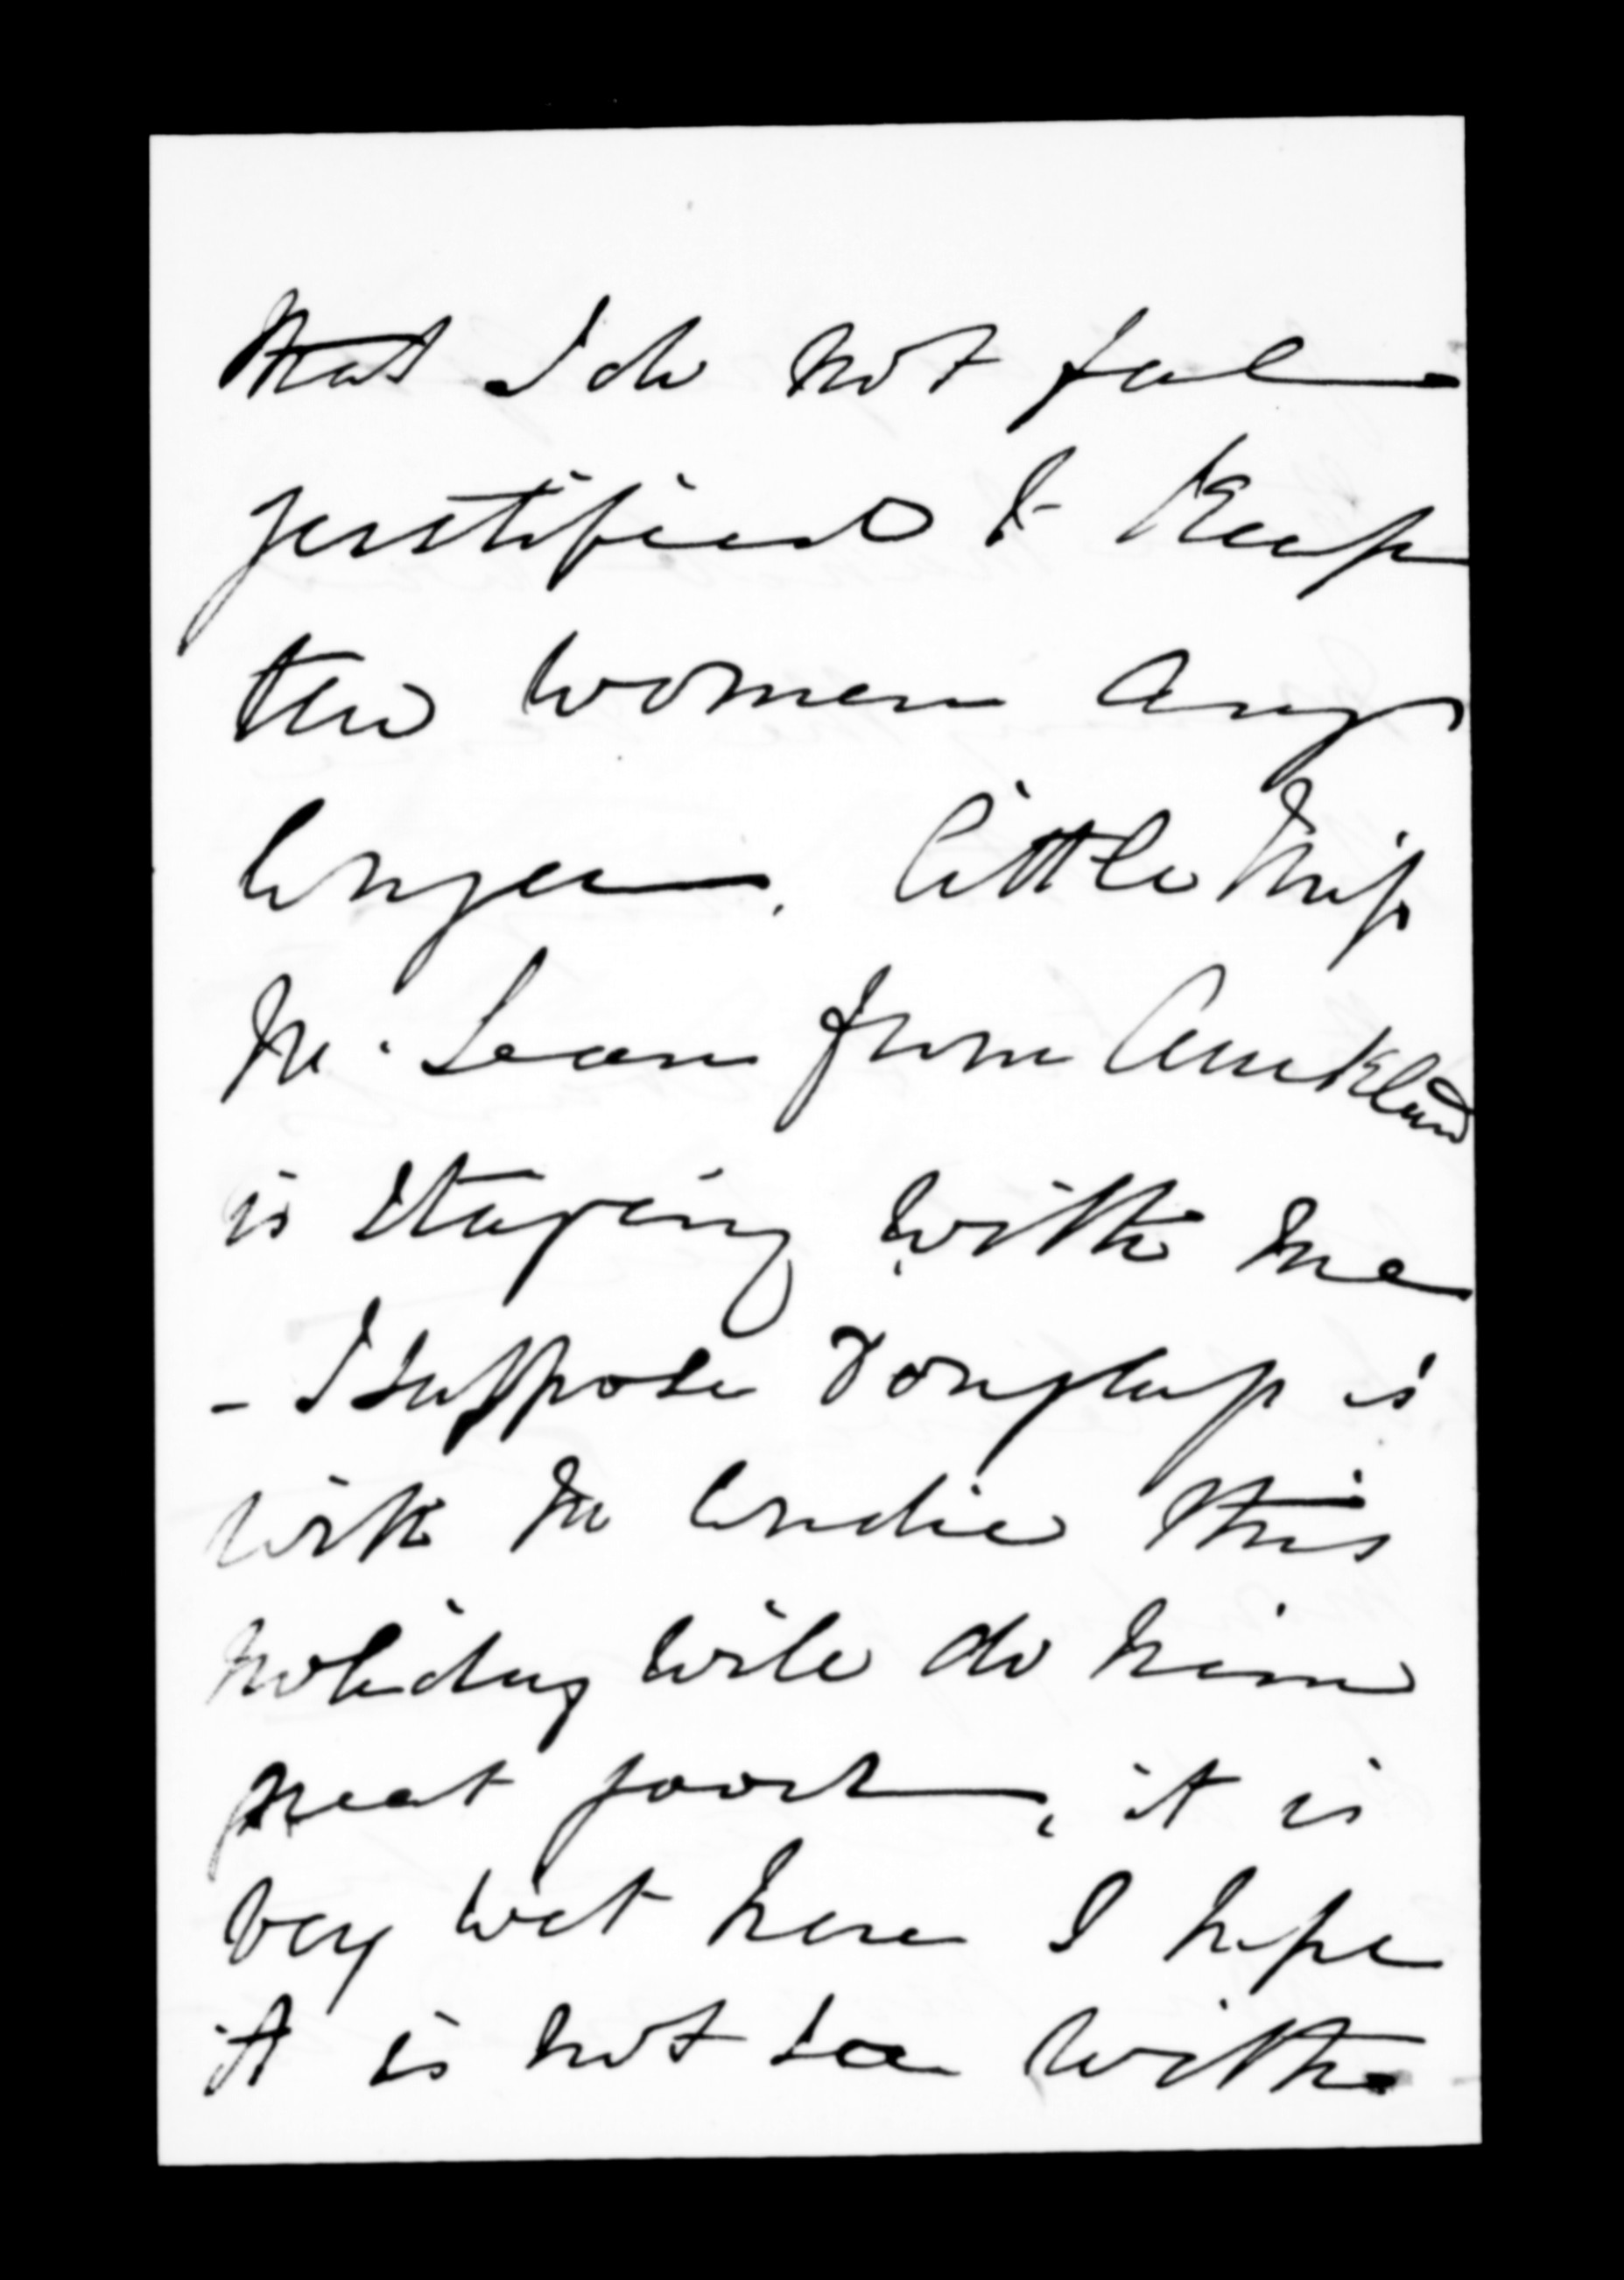 that I do not feel
justified to keep
the women any
longer. little Miss
Mc. Lean from Auckland
is staying with me
- I suppose Douglass is
with Mr this
holiday will do him
great good, it is
very wet here I hope
it is not so with